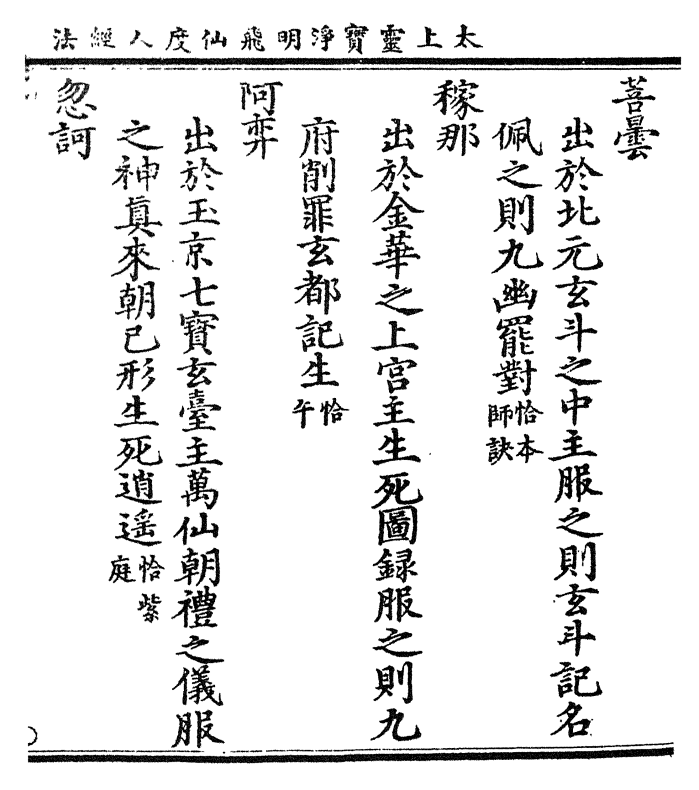 太上靈寶淨明飛仙度人經法
菩曇
出於北元玄斗之中主服之則玄斗記名
佩之則九幽罷對恰本師訣
稼那
出於金華之上宮主生死圖録服之則九
府削罪玄都記生恰午
阿弈
出於玉京七寶玄臺主萬仙朝禮之儀服
之神真來朝已形生死逍遥恰紫庭
忽訶